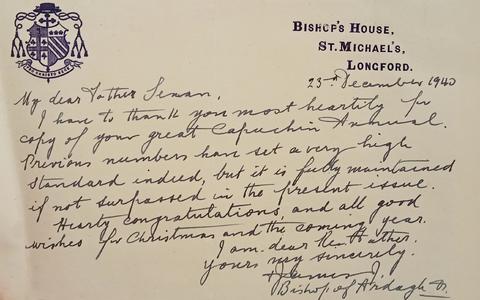 BISHOP'S HOUSE,
ST. MICHAEL'S,
LONGFORD.
23rd December 1940
My dear Father Senan,
I have to thank you most heartily for
copy of your great Capuchin Annual.
Previous numbers have set a very high
standard indeed, but it is fully maintained
if not surpassed in the present issue.
Hearty congratulations, and all good
wishes for Christmas and the coming year.
I am, dear Rev. Father,
Yours very sincerely,
+ James J.
Bishop of Ardagh &